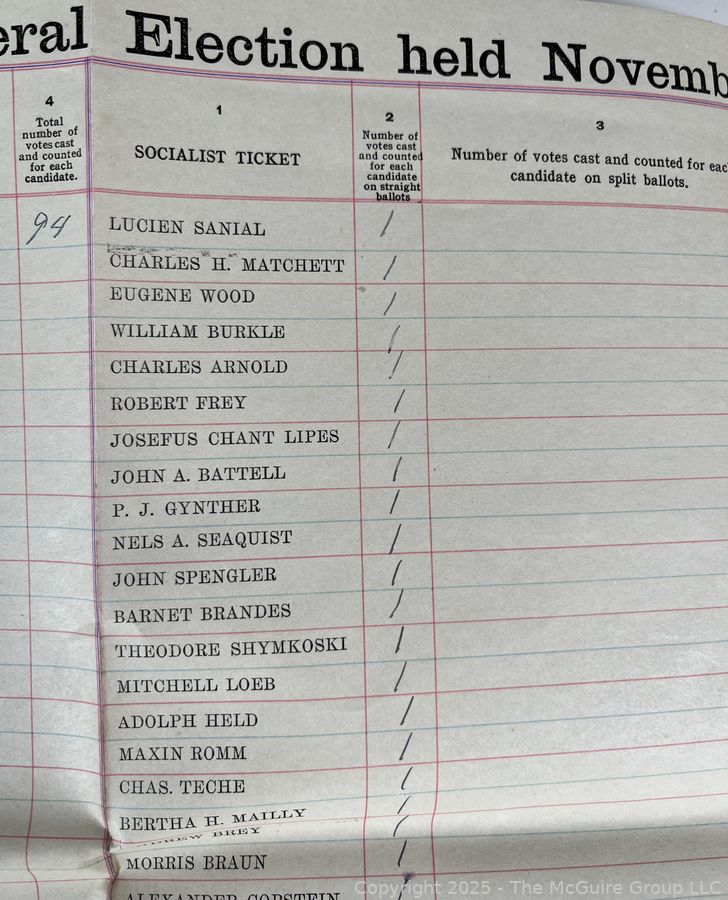 Election held
4
Total
number of
votes cast
and counted
for each
candidate.
94
1
SOCIALIST TICKET
2
Number of
votes cast
and counted
for each
candidate
on straight
ballots
3
Number of votes cast and counted for
candidate on split ballots.
LUCIEN SANIAL /
CHARLES H. MATCHETT /
EUGENE WOOD /
WILLIAM BURKLE /
CHARLES ARNOLD /
ROBERT FREY /
JOSEFUS CHANT LIPES /
JOHN A. BATTELL /
P. J. GYNTHER /
NELS A. SEAQUIST /
JOHN SPENGLER /
BARNET BRANDES /
THEODORE SHYMKOSKI /
MITCHELL LOEB /
ADOLPH HELD /
MAXIN ROMM /
CHAS. TECHE /
BERTHA H. MAILLY /
BREY /
MORRIS BRAUN /
ALEXANDER /
Copyright 2025 - The McGuire Group LLC